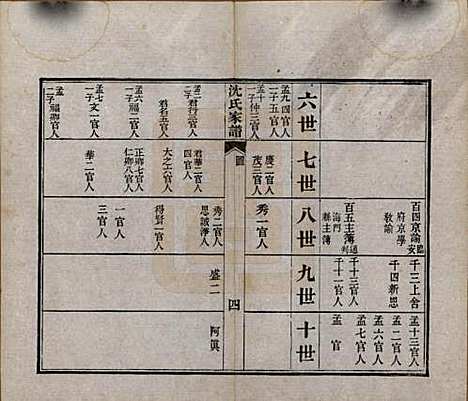 六世 七世 八世 九世 十世
百四京諭臨安
府京學
教諭
千三上舍
孟十三官人
孟一官人
千四新恩
孟二官人
孟六官人
百五主簿通判
海門
縣主簿
千十三官人
孟七官人
千十一官人
孟 官
孟九四官人
二子五官人
孟十
一子仲三官人
慶二官人
茂三官人
秀一官人
沈氏家譜
圖
四
孟二君行三官人
二子
君華二官人
四官人
秀二官人
思誠淨人
盛二
阿真
君名五官人
大之六官人
得賢一官人
孟六福二官人
一子
正卿七官人
仁卿八官人
一官人
孟七文一官人
一子
華二官人
三官人
孟八官人
二子福卿官人